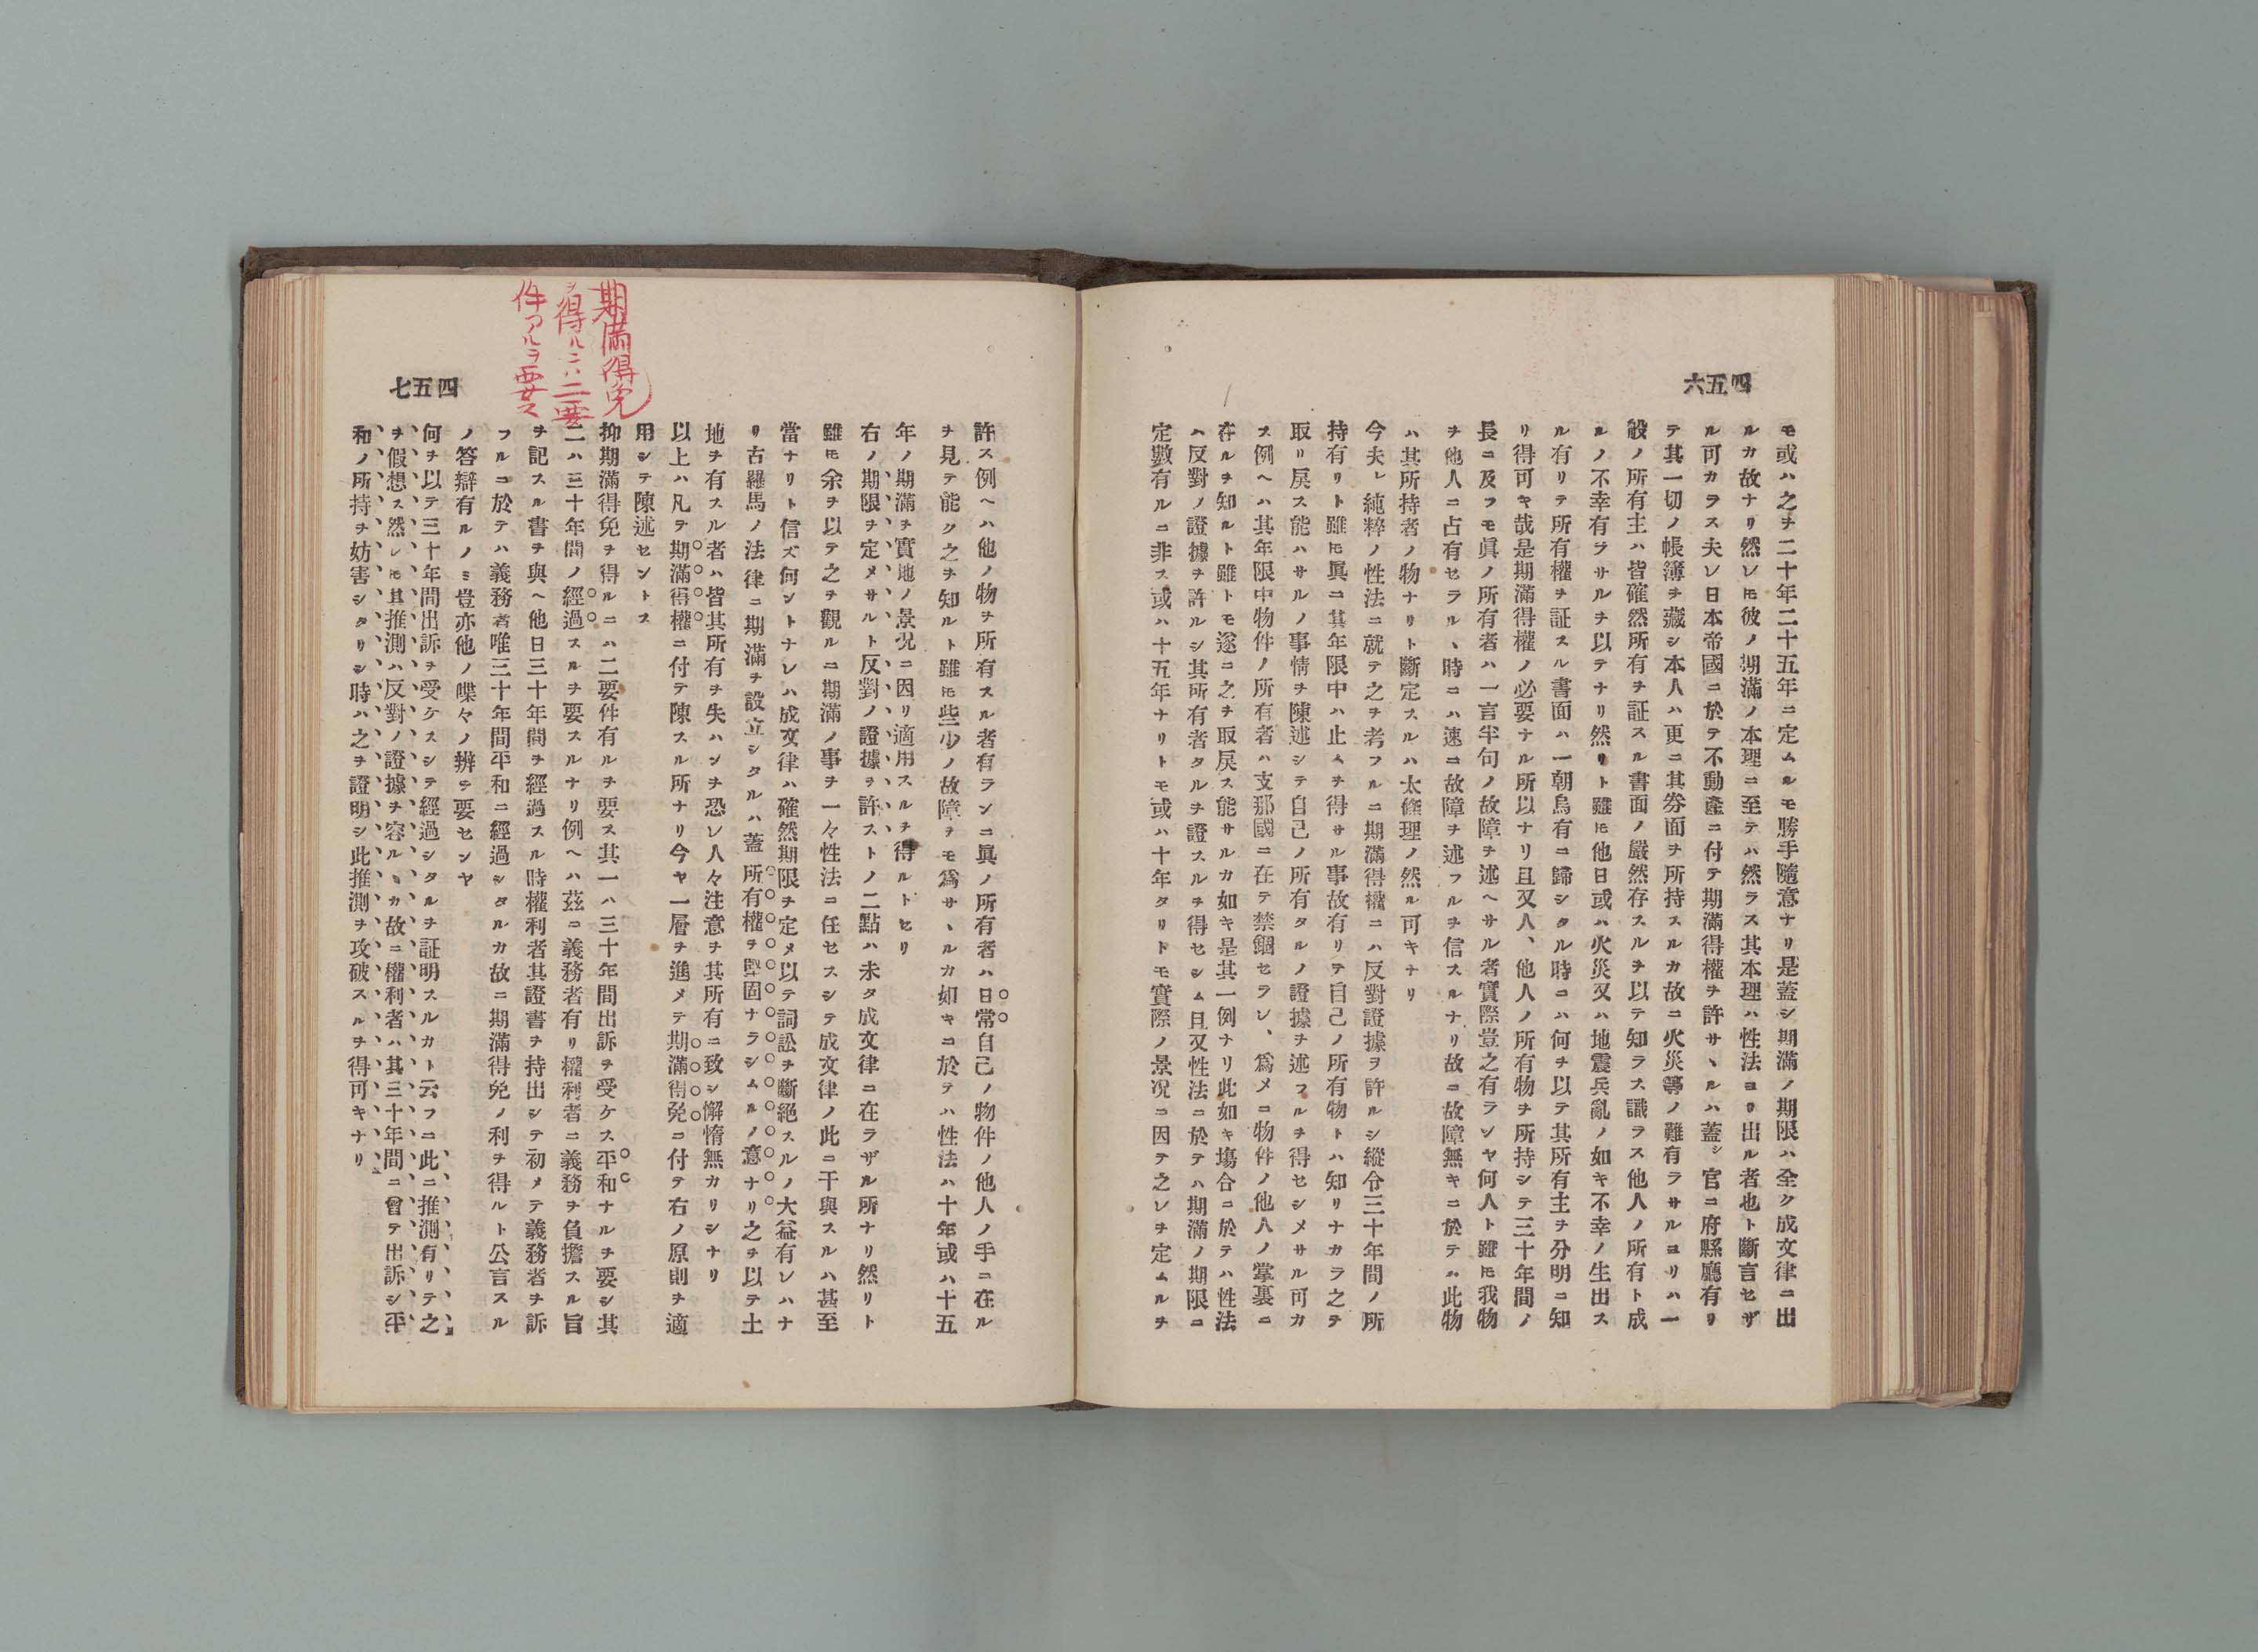 四五六
モ或ハ之ヲ二十年二十五年ニ定ムルモ勝手隨意ナリ是蓋シ期滿ノ期限ハ全ク成文律ニ出
ルカ故ナリ然レ𪜈彼ノ期滿ノ本理ニ至テハ然ラス其本理ハ性法ヨリ出ル者也ト斷言セザ
ル可カラス夫レ日本帝國ニ於テ不動產ニ付テ期滿得權ヲ許サヽルハ蓋シ官ニ府縣廳有リ
テ其一切ノ帳簿ヲ藏シ本人ハ更ニ其券面ヲ所持スルカ故ニ火災等ノ難有ラサルヨリハ一
般ノ所有主ハ皆確然所有ヲ証スル書面ノ嚴然存スルヲ以テ知ラス識ラス他人ノ所有ト成
ルノ不幸有ラサルヲ以テナリ然リト雖𪜈他日或ハ火災又ハ地震兵亂ノ如キ不幸ノ生出ス
ル有リテ所有權ヲ証スル書面ハ一朝烏有ニ歸シタル時ニハ何ヲ以テ其所有主ヲ分明ニ知
リ得可キ哉是期滿得權ノ必要ナル所以ナリ且又人、他人ノ所有物ヲ所持シテ三十年間ノ
長ニ及フモ眞ノ所有者ハ一言半句ノ故障ヲ述ヘサル者實際豈之有ランヤ何人ト雖𪜈我物
ヲ他人ニ占有セラルヽ時ニハ速ニ故障ヲ述フルヲ信スルナリ故ニ故障無キニ於テハ此物
ハ其所持者ノ物ナリト斷定スルハ太條理ノ然ル可キナリ
今夫レ純粹ノ性法ニ就テ之ヲ考フルニ期滿得權ニハ反對證據ヲ許ルシ縱令三十年間ノ所
持有リト雖𪜈眞ニ其年限中ハ止ムヲ得サル事故有リテ自己ノ所有物トハ知リナカラ之テ
取リ戾ス能ハサルノ事情ヲ陳述シテ自己ノ所有タルノ證據ヲ述フルヲ得セシメサル可カ
ス例ヘハ其年限中物件ノ所有者ハ支那國ニ在テ禁錮セラレ、爲メニ物件ノ他人ノ掌裏ニ
在ルヲ知ルト雖トモ遂ニ之ヲ取戾ス能サルカ如キ是其一例ナリ此如キ塲合ニ於テハ性法
ハ反對ノ證據ヲ許ルシ其所有者タルヲ證スルヲ得セシム且又性法ニ於テハ期滿ノ期限ニ
定數有ルニ非ス或ハ十五年ナリトモ或ハ十年タリトモ實際ノ景況ニ因テ之レヲ定ムルヲ
期満得免
ヲ得ルニハ二要
件アルヲ要ス
四五七
許ス例ヘハ他ノ物ヲ所有スル者有ランニ眞ノ所有者ハ日常自己ノ物件ノ他人ノ手ニ在ル
ヲ見テ能ク之ヲ知ルト雖𪜈些少ノ故障ヲモ爲サヽルカ如キニ於テハ性法ハ十年或ハ十五
年ノ期滿ヲ實地ノ景況ニ因リ適用スルヲ得ルトセリ
右ノ期限ヲ定メサルト反對ノ證據ヲ許ストノ二點ハ未タ成文律ニ在ラザル所ナリ然リト
雖𪜈余ヲ以テ之ヲ觀ルニ期滿ノ事ヲ一々性法ニ任セスシテ成文律ノ此ニ干與スルハ甚至
當ナリト信ズ何ントナレハ成文律ハ確然期限ヲ定メ以テ詞訟ヲ斷絕スルノ大益有レハナ
リ古羅馬ノ法律ニ期滿ヲ設立シタルハ蓋所有權ヲ堅固ナラシムルノ意ナリ之ヲ以テ土
地ヲ有スル者ハ皆其所有ヲ失ハンヲ恐レ人々注意ヲ其所有ニ致シ懈惰無カリシナリ
以上ハ凡テ期滿得權ニ付テ陳スル所ナリ今ヤ一層ヲ進メテ期滿得免ニ付テ右ノ原則ヲ適
用シテ陳述セントス
抑期滿得免ヲ得ルニハ二要件有ルヲ要ス其一ハ三十年間出訴ヲ受ケス平和ナルヲ要シ其
二ハ三十年間ノ經過スルヲ要スルナリ例ヘハ茲ニ義務者有リ權利者ニ義務ヲ負擔スル旨
ヲ記スル書ヲ與ヘ他日三十年間ヲ經過スル時權利者其證書ヲ持出シテ初メテ義務者ヲ訴
フルニ於テハ義務者唯三十年間平和ニ經過シタルカ故ニ期滿得免ノ利ヲ得ルト公言スル
ノ答辯有ルノミ豈亦他ノ喋々ノ辨ヲ要センヤ
何ヲ以テ三十年間出訴ヲ受ケスシテ經過シタルヲ証明スルカト云フニ此ニ推測有リテ之
ヲ假想ス然レ𪜈其推測ハ反對ノ證據ヲ容ルヽカ故ニ權利者ハ其三十年間ニ曾テ出訴シ平
和ノ所持ヲ妨害シタリシ時ハ之ヲ證明シ此推測ヲ攻破スルヲ得可キナリ